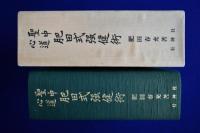 聖中心道
肥田式強健術
肥田春充著
壮神社
聖中心道
肥田式強健術
肥田春充著
壮神社